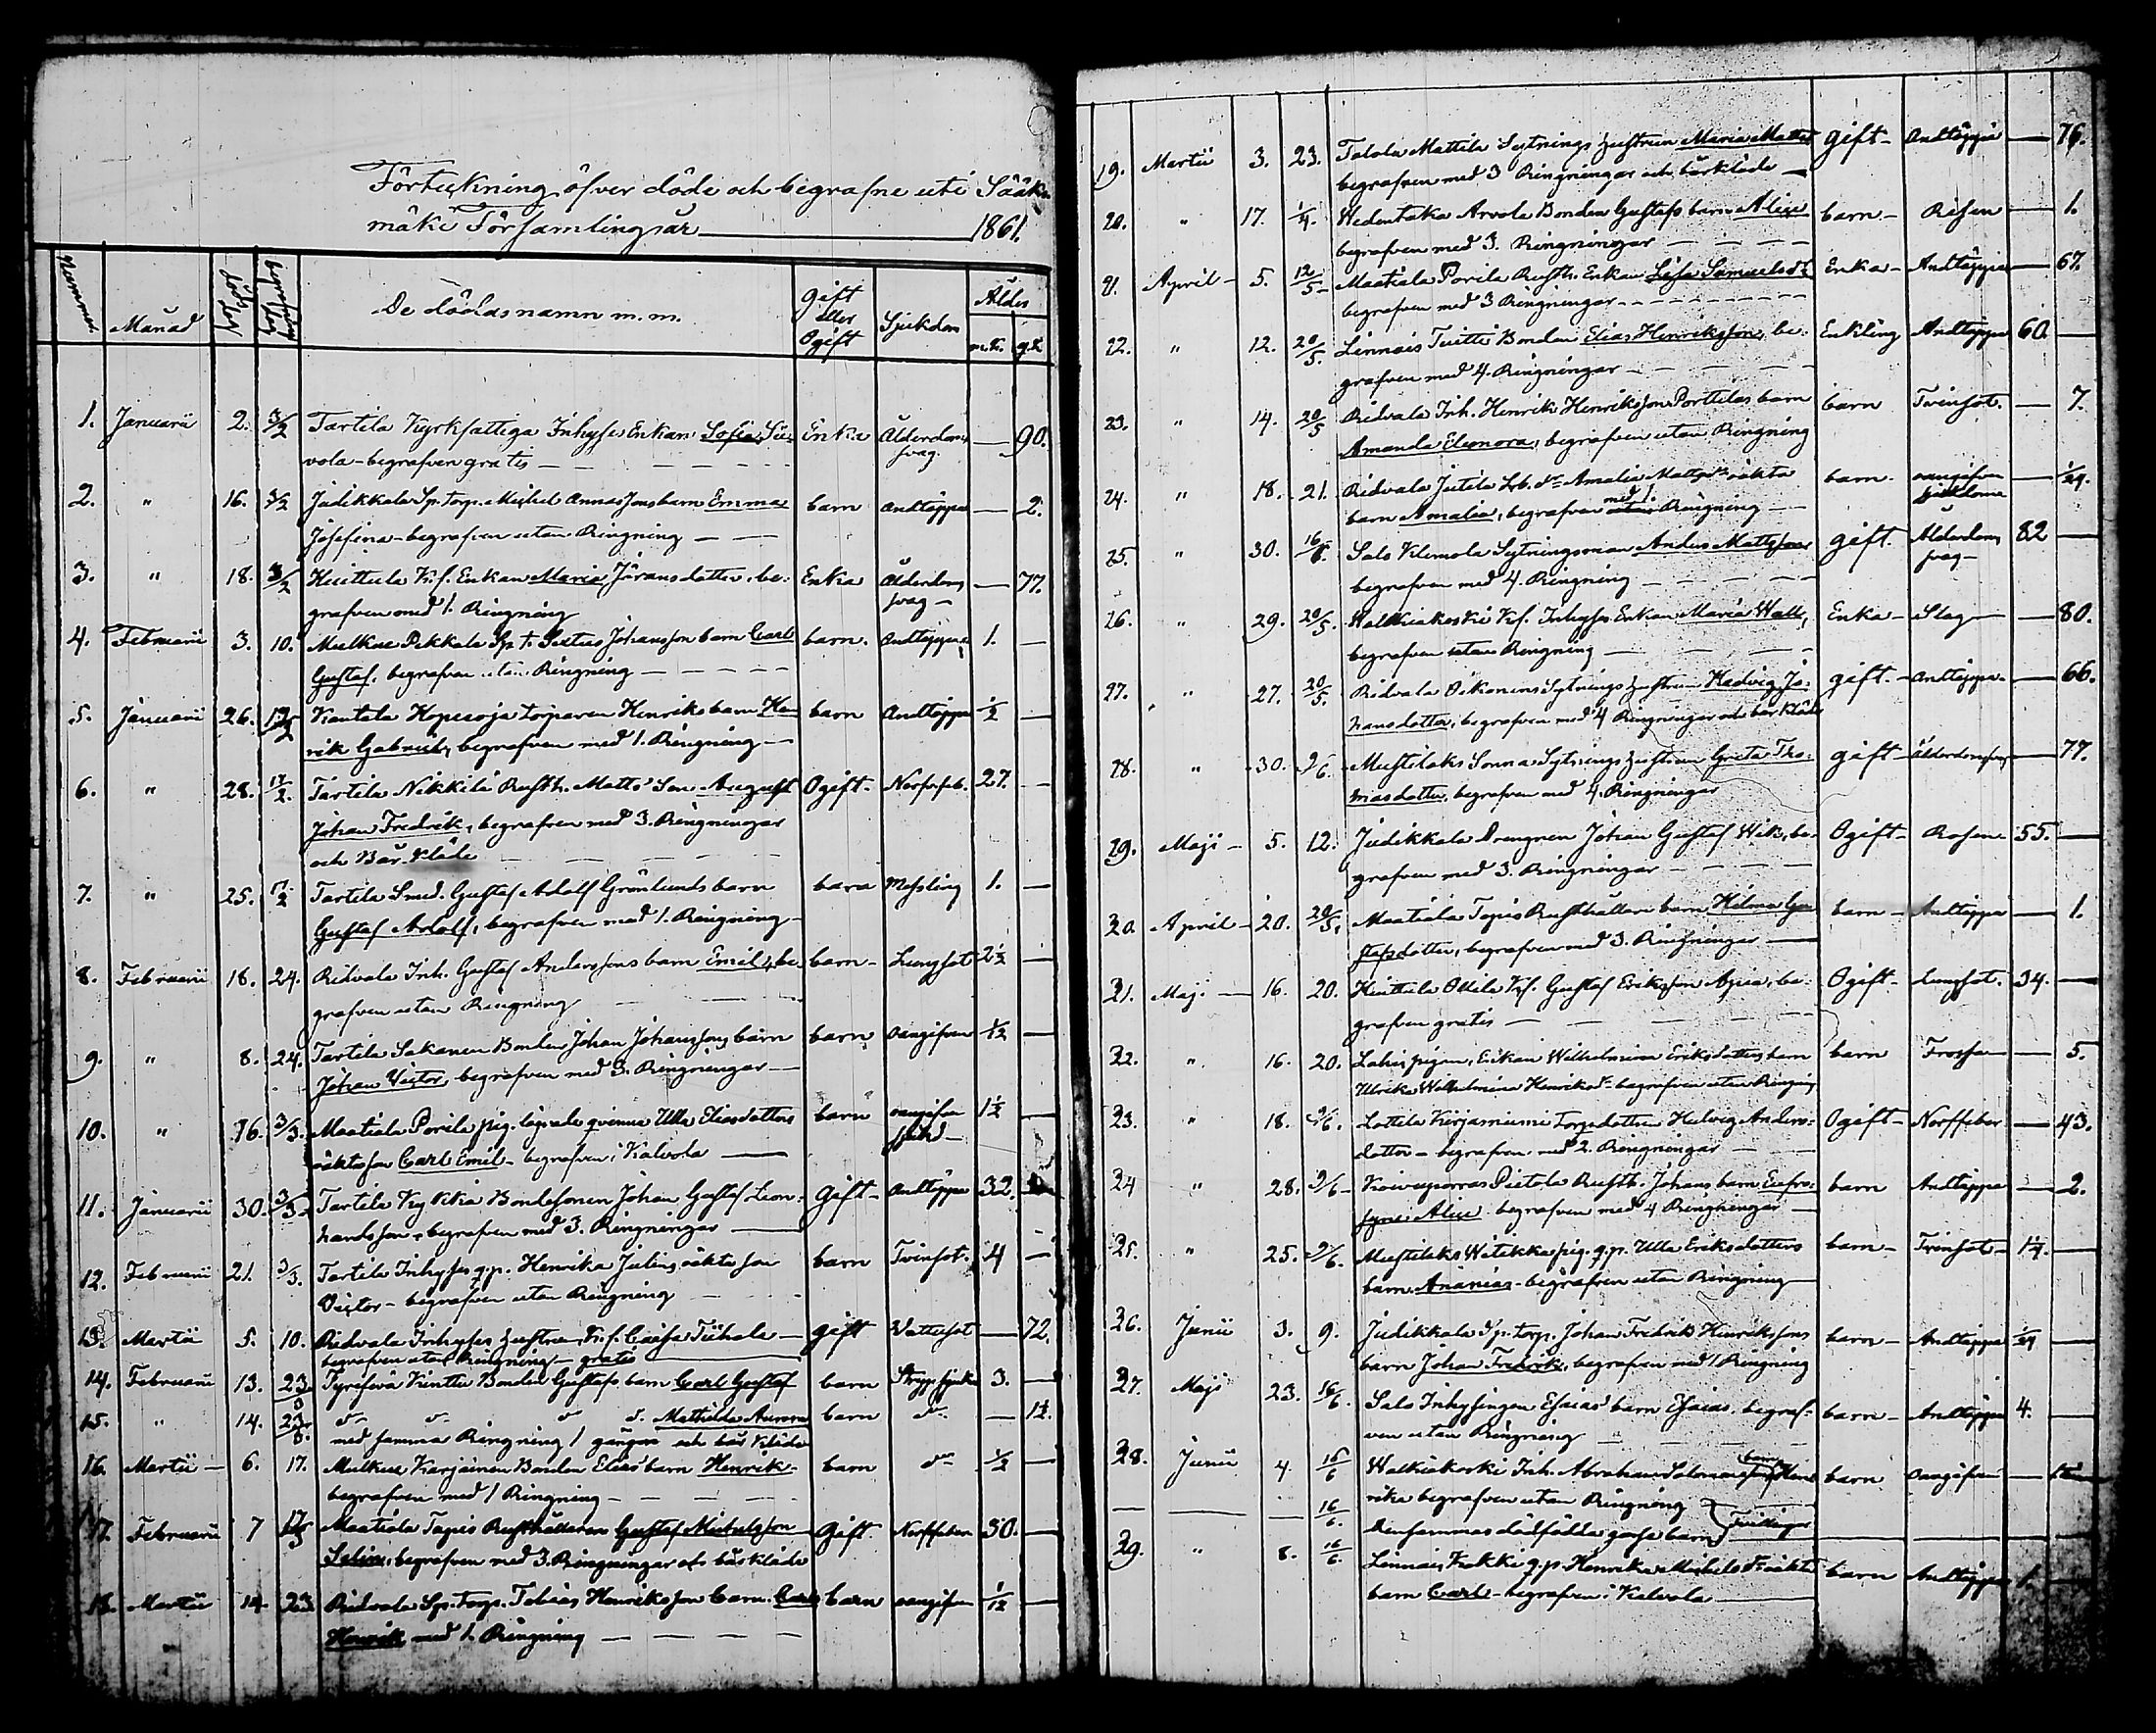 Förteckning öfver döde och begrafne uti Sääks-
mäki Församlings år 1861.
Nummer Månad döds dag begrafnings dag De dödas namn m. m. gift eller Ogift Sjukdom Ålder
m.k. q.k
1. Januarii 2. 3/2 Tartila Kyrkfattiga Inhyses Enkan Sofia Su- Enka Ålderdoms 90.
vola - begrafven gratis svag.
2. " 16. 3/2 Judikkala Sp. torp. Michel Annas Jonsbarn Emma barn Andtäppa 2.
Josefina - begrafven utan Ringning
3. " 18. 3/2 Huittula Krf. Enkan Maria Jöransdotter, be- Enka Ålderdoms 77.
grafven med 1. Ringning svag
4. Februarii 3. 10. Mulkue Pekkala Sp. t. Sixtus Johansson barn Carl barn. Andtäppa 1.
Gustaf, begrafven utan Ringning
5. Januarii 26. Kantala Hopeoja torparen Henriks barn Hen- barn Andtäppa 1/2
rik Gabriel, begrafven med 1. Ringning
6. " 28. 17/2. Tartila Nikkilä Rusth. Matts' Son August Ogift Nerffeb. 27.
Johan Fredrik, begrafven med 3. Ringningar
och Bår-kläde
7. " 25. 17/2 Tartila Smed. Gustaf Adolf Grönlunds barn barn Messling 1.
Gustaf Adolf, begrafven med 1. Ringning
8. Februarii 18. 24. Ridvala Inh. Gustaf Anderssons barn Emil, be- barn Lungsot 2 1/2
grafven utan Ringning
9. " 8. 24. Tartila Sakanen Bonden Johan Johanssons barn barn oangifven 1/12
Johan Victor, begrafven med 3. Ringningar
10. " 16. 3/3. Maatiala Porila pig. lägrade qvinna Ulla Eliasdotters barn oangifven 1 1/2
oäkta son Carl Emil - begrafven i Kalvola sjukd
11. Januarii 30. 3/3. Tartila Kykkiä Bondesonen Johan Gustaf Leon- Gift Andtäppa 32.
hardsson, begrafven med 3. Ringningar
12. Februarii 21. 3/3. Tartila Inhyses q.p. Henrika Julins oäkta son barn Tvinsot. 4
Victor - begrafven utan Ringning
13. Martii 5. 10. Ridvala Inhyses hustru, Krf. Caisa Tuhala gift Vattusot 72.
begrafven utan Ringning - gratis
14. Februarii 13. 23. Tyrisevä Kinttu Bonden Gustafs barn Carl Gustaf barn Strypsjuka 3.
15. " 14. 23. do do do d. Mathilda Aurora barn do 1 1/2.
med samma Ringning 1 gången och bår kläde
16. Martii 6. 17. Mulkue Karjainen Bonden Elias' barn Henrik barn do 1/2
begrafven med 1 Ringning
17. Februarii 7 17/3 Maatiala Tapis Rusthållaren Gustaf Michelsson Gift. Nerffeber 50.
Salin, begrafven med 3. Ringningar och bårkläde
18. Martii 14 23 Ridvala Sp. Torp. Tobias Henriksson barn. Carl barn oangifven 1/12
Henrik med 1. Ringning
19. Martii 3. 23. Talola Mattila Sytnings hustrun Maria Matts gift Andtäppa 76.
begrafven med 3 Ringningar och bårkläde
20. " 17. 1/4. Hedentaka Arvola Bonden Gustafs barn Alice barn Rosen 1.
begrafven med 3. Ringningar
21. April 5. 12/5 Maatiala Porila Rusth. Enkan Lisa Samuelsdr Enka Andtäppa 67.
begrafven med 3 Ringningar
22. " 12. 20/5. Linnais Tuitti Bonden Elias Henriksson, be- Enkling Andtäppa 60.
grafven med 4. Ringningar
23. " 14. 20/5 Ridvala Inh. Henrik Henriksson Porttilas barn barn Tvinsot. 7.
Amanda Eleonora, begrafven utan Ringning
24. " 18. 21. Ridvala Jutila Amalia Mattsdrs oäkta barn. oangifven 1/24.
barn Amalia, begrafven med 1. Ringning sjukdom
25. " 30. 16/6. Salo Klemola Sytningsman Anders Mattsson gift. Ålderdoms 82
begrafven med 4. Ringning svag
26. " 29. 20/5. Walkiakoski Krf. Inhyses Enkan Maria Wall, Enka Slag 80.
begrafven utan Ringning
27. " 27. 20/5. Ridvala Oikonens Sytnings hustrun Hedvig Jo- gift. Andtäppa 66.
hansdotter, begrafven med 4 Ringningar och bårkläde
28. " 30. 9/6. Mustilaks Sonna Sytnings hustrun Greta Tho- gift Ålderdomsvag 77.
masdotter, begrafven med 4. Ringningar
29. Maji 5. 12. Judikkala Drengen Johan Gustaf Wik, be- Ogift Rosen 55.
grafven med 3. Ringningar
30. April 20. 20/5. Maatiala Tapis Rusthållare barn Hilma Gu- barn Andtäppa 1.
stafsdotter, begrafven med 3. Ringningar
31. Maji 16. 20. Huittula Ollila Krf. Gustaf Eriksson be- Ogift lungsot. 34.
grafven gratis
32. " 16. 20. Lahis pigan, Enkan Wilhelmina Eriksdotters barn barn Frossan 5.
Ulrika Wilhelmina Henriksdr begrafven utan Ringning
33. " 18. 9/6. Lottila Kirjamiemi Torp. dottern Hedvig Anders- Ogift Nerffeber 43.
dotter - begrafven med 2. Ringningar
34 " 28. 9/6 Koivuporras Pietola Rusth. Johans barn Eufro- barn Andtäppa 2.
syne Alice begrafven med 4 Ringningar
35. " 25. 9/6. Mustilaks Witikka pig. q.p. Ulla Eriksdotters barn Tvinsot 1 1/4.
barn Ananias - begrafven utan Ringning
36. Junii 3. 9. Judikkala Sp. torp. Johan Fredrik Henrikssons barn Andtäppa 1/24
barn Johan Fredrik, begrafven med 1 Ringning
37. Maji 23. 16/6. Salo Inhysingen Esaias' barn Esaias, begraf- barn Andtäppa 4.
ven utan Ringning
38. Junii 4. 16/6 Walkiakoski Inh. Abraham Salomonssons barn Hen- barn oangifven
rika begrafven utan Ringning
16/6. Densammas dödfödda gosse barn tvillingar
39. " 8. 16/6. Linnais Kokki q.p. Henrika Michelsdr oäkta barn Andtäppa 1.
barn Carl - begrafven i Kalvola